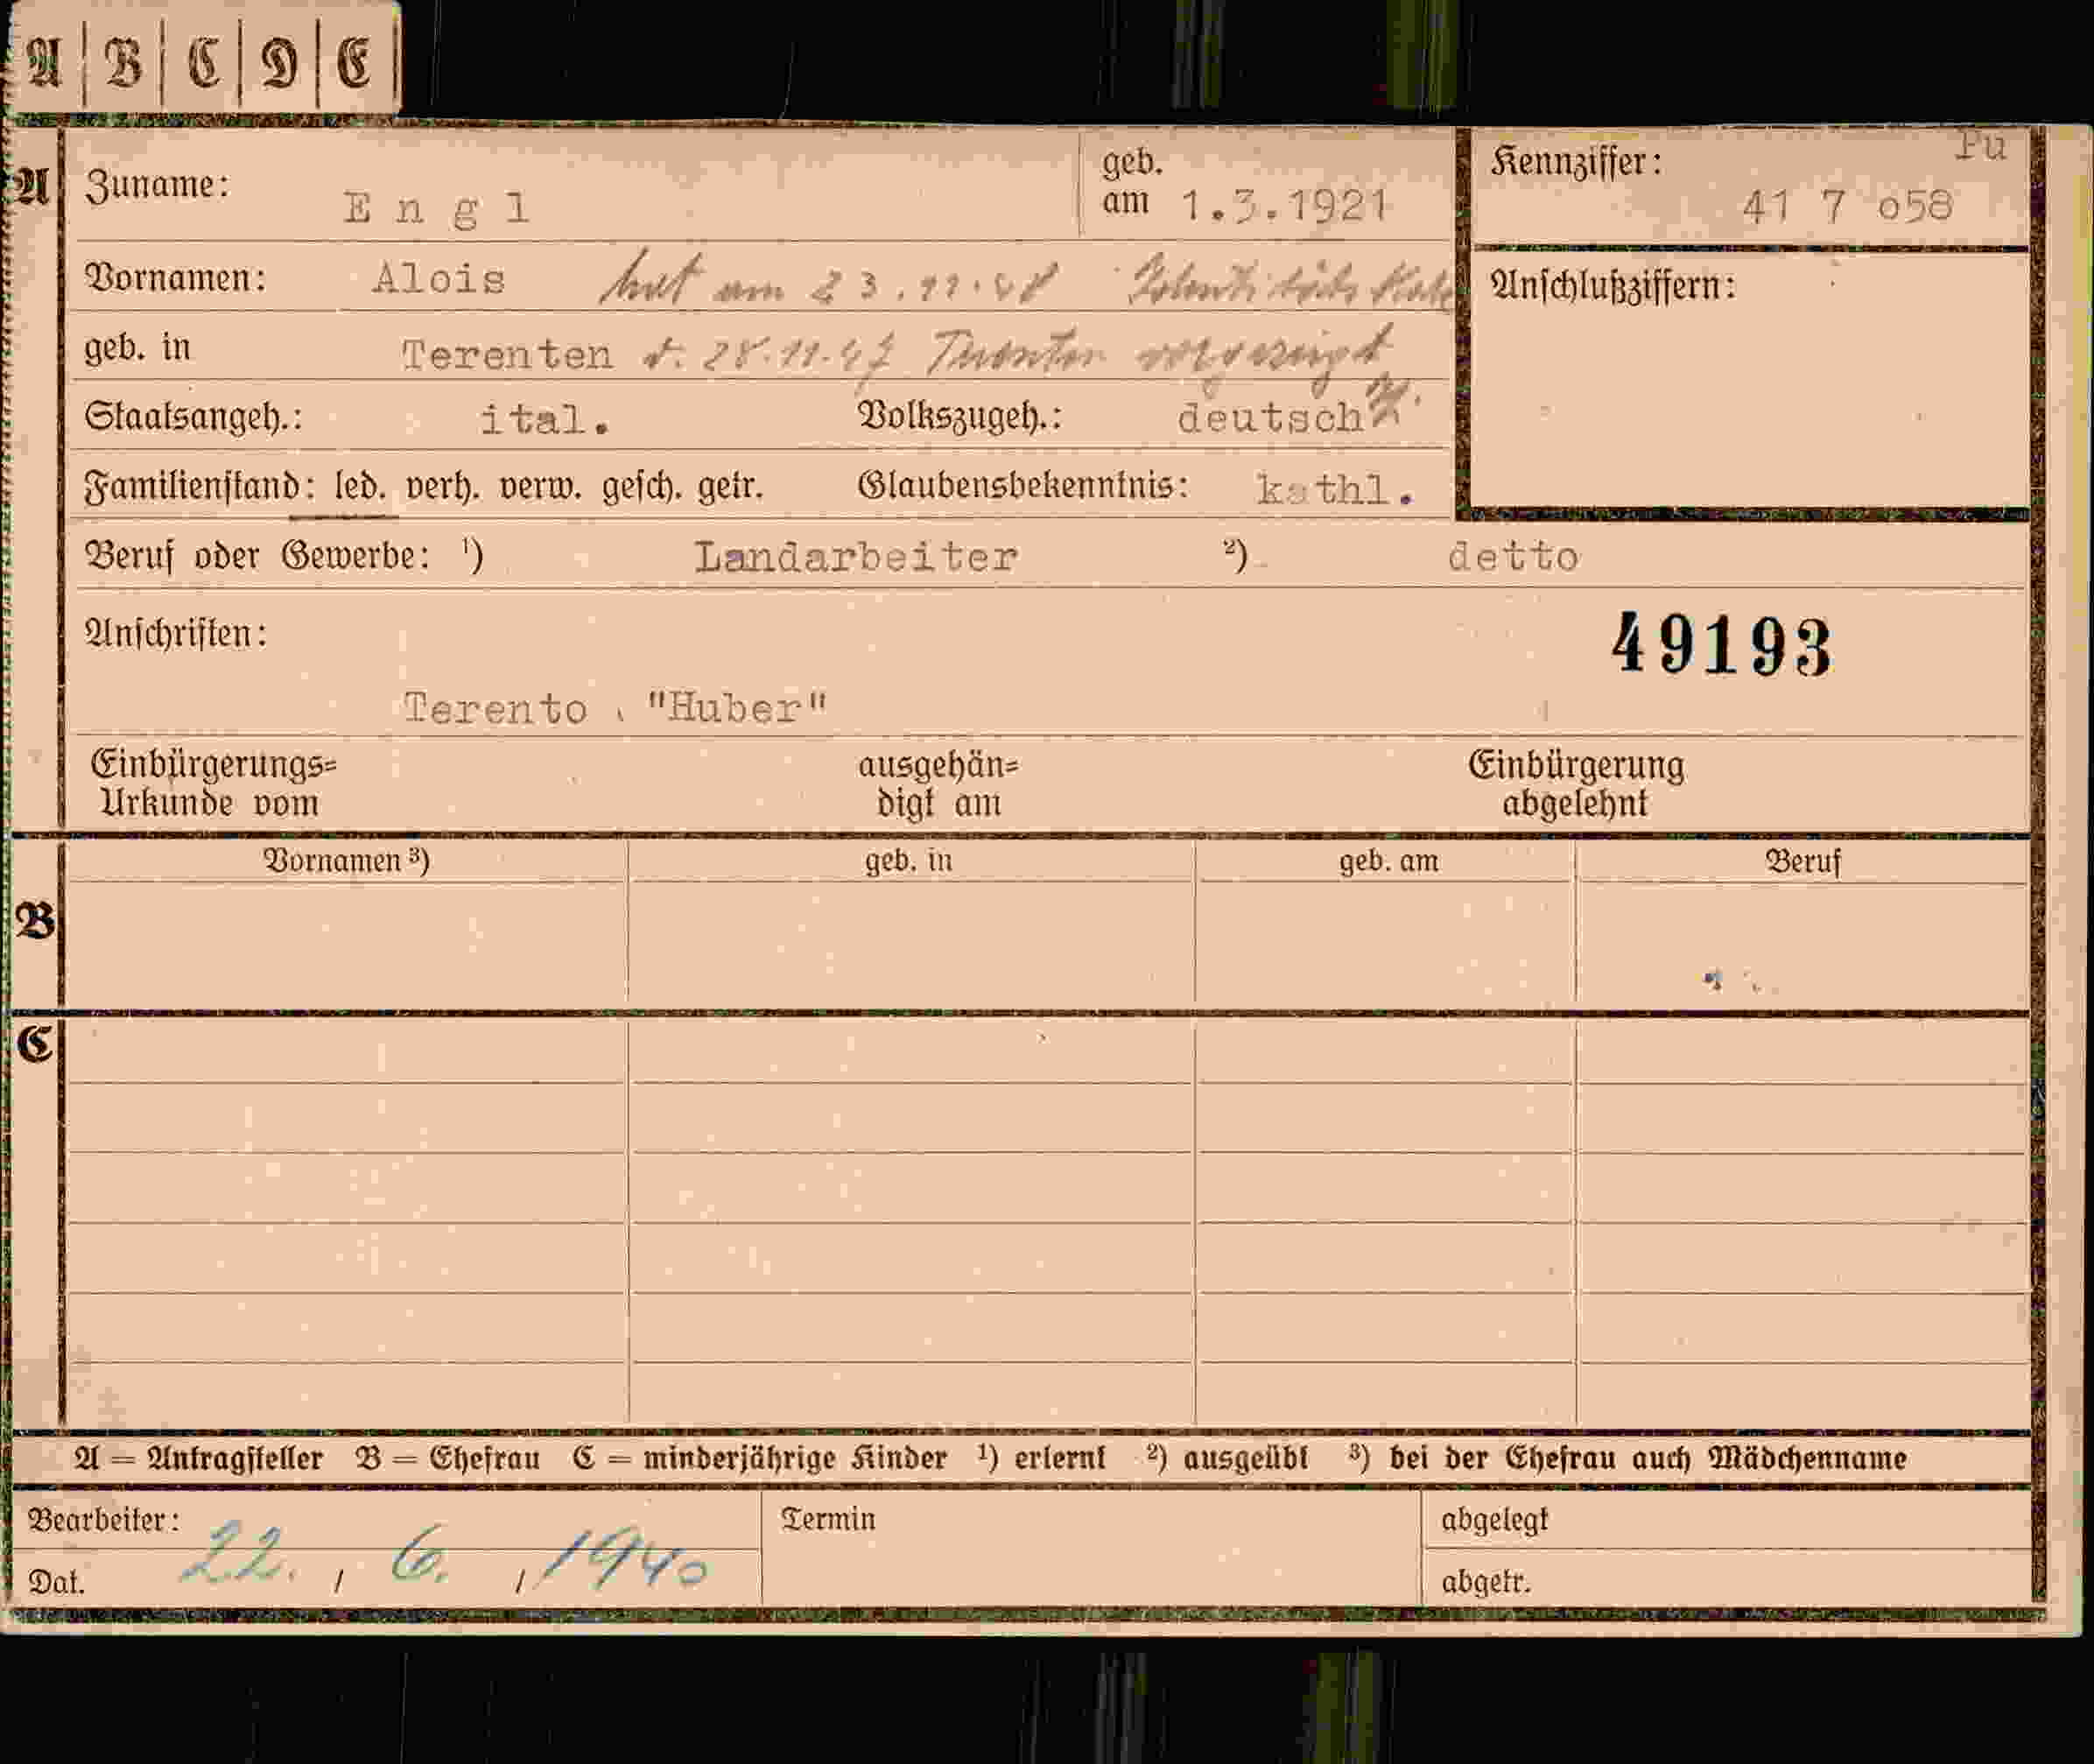 A | B | C | D | E |
Fu
A Zuname: Engl geb. am 1.3.1921 Kennziffer: 41 7 o58
Vornamen: Alois hat am 23.11.48 Anschlußziffern:
geb. in Terenten v. 28.11.47 Terenten vorgezeigt
Staatsangeh.: ital. Volkszugeh.: deutsch
Familienstand: led. verh. verw. gesch. getr. Glaubensbekenntnis: kathl.
Beruf oder Gewerbe: ¹) Landarbeiter ²) detto
Anschriften: 49193
Terento, "Huber"
Einbürgerungs= ausgehän= Einbürgerung
Urkunde vom digt am abgelehnt
Vornamen ³) geb. in geb. am Beruf
B
C
A = Antragsteller B = Ehefrau C = minderjährige Kinder ¹) erlernt ²) ausgeübt ³) bei der Ehefrau auch Mädchenname
Bearbeiter: Termin abgelegt
Dat. 22. / 6. / 1940 abgetr.